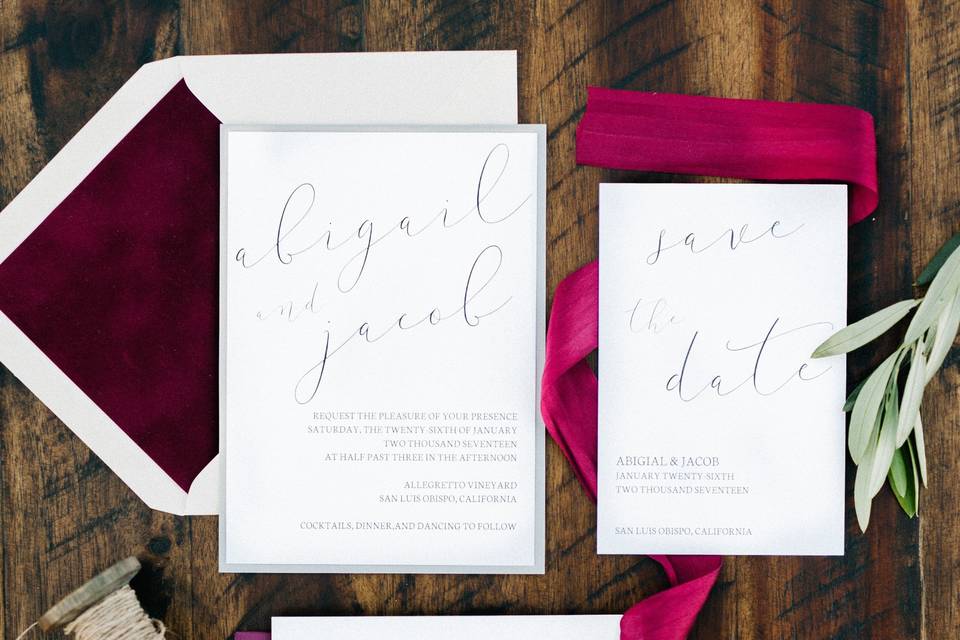 abigail
and
jacob
REQUEST THE PLEASURE OF YOUR PRESENCE
SATURDAY, THE TWENTY-SIXTH OF JANUARY
TWO THOUSAND SEVENTEEN
AT HALF PAST THREE IN THE AFTERNOON
ALLEGRETTO VINEYARD
SAN LUIS OBISPO, CALIFORNIA
COCKTAILS, DINNER,AND DANCING TO FOLLOW
save
the
date
ABIGIAL & JACOB
JANUARY TWENTY-SIXTH
TWO THOUSAND SEVENTEEN
SAN LUIS OBISPO, CALIFORNIA